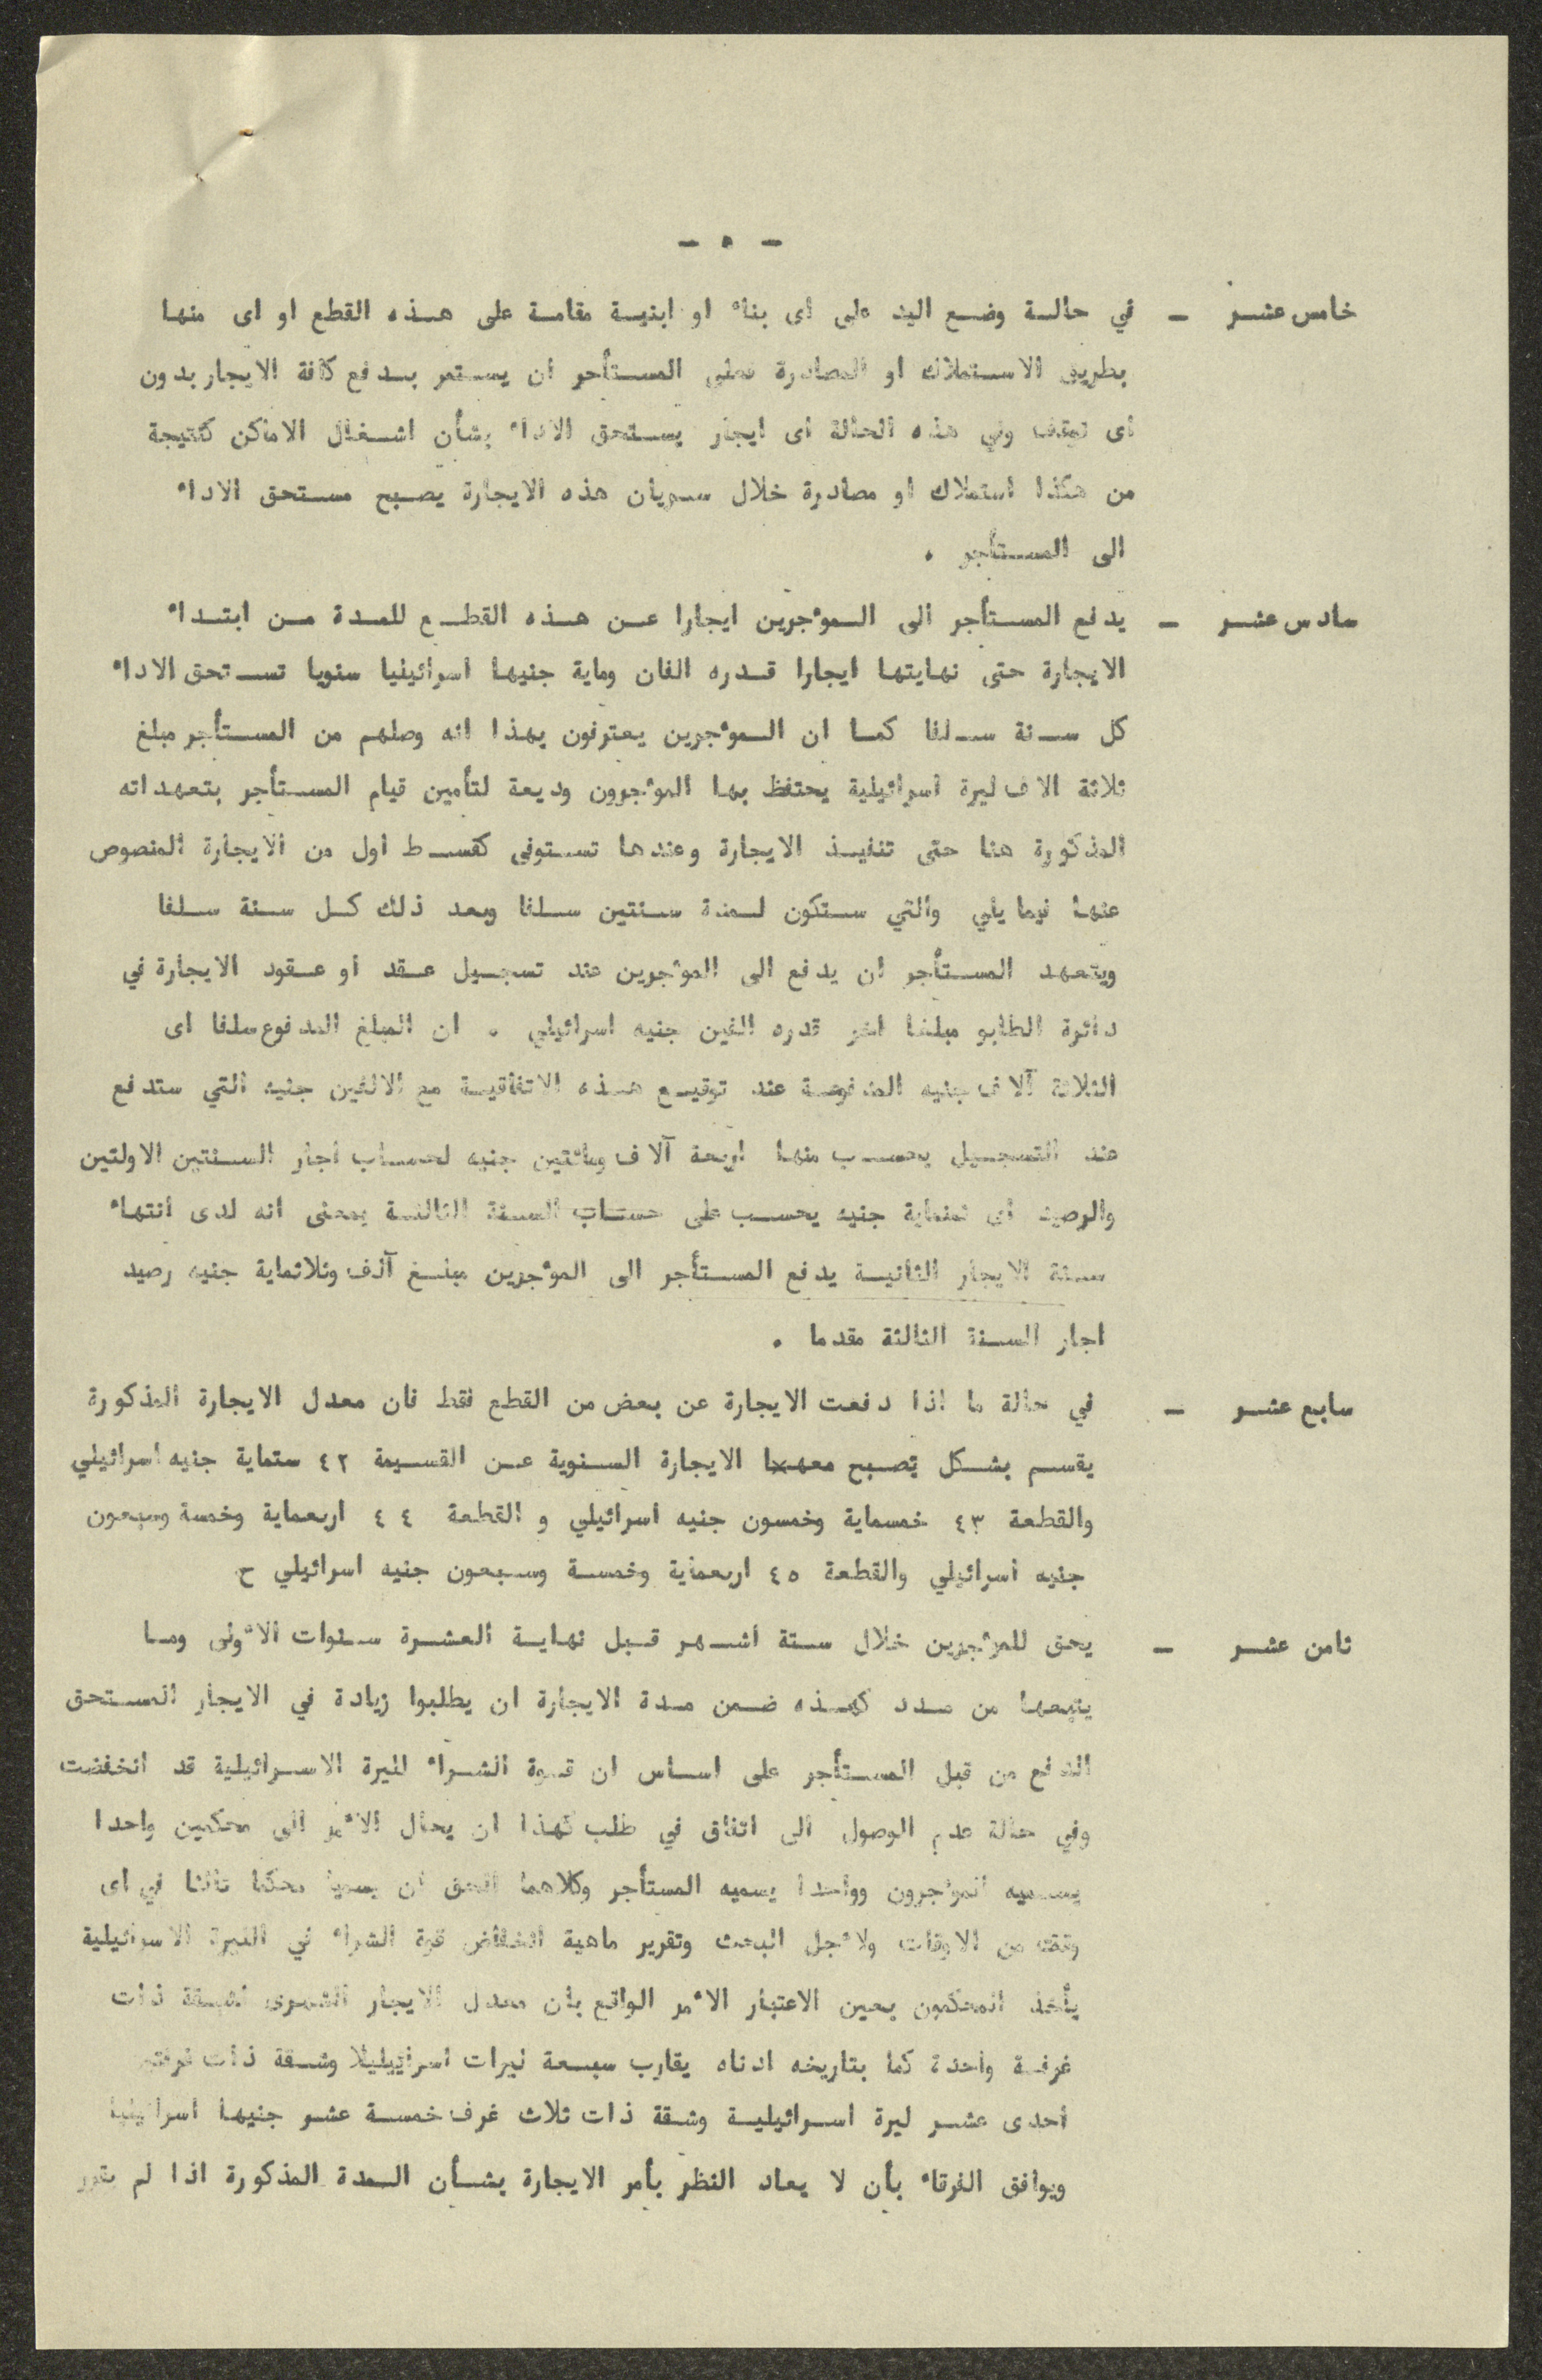 - ٥ -
خامس عشر - في حالة وضع اليد على اى بناء او ابنية مقامة على هذه القطع او اى منها
بطريق الاستملاك او المصادرة فعلى المستأجر ان يستمر بدفع كافة الايجار بدون
اى توقف وفي هذه الحالة اى ايجار يستحق الاداء بشأن اشغال الاماكن كنتيجة
من هكذا استملاك او مصادرة خلال سريان هذه الايجارة يصبح مستحق الاداء
الى المستأجر .
سادس عشر - يدفع المستأجر الى المؤجرين ايجارا عن هذه القطع للمدة من ابتداء
الايجارة حتى نهايتها ايجارا قدره الفان وماية جنيها اسرائيليا سنويا تستحق الاداء
كل سنة سلفا كما ان المؤجرين يعترفون بهذا انه وصلهم من المستأجر مبلغ
ثلاثة الاف ليرة اسرائيلية يحتفظ بها المؤجرون وديعة لتأمين قيام المستأجر بتعهداته
المذكورة هنا حتى تنفيذ الايجارة وعندها تستوفى كقسط اول من الايجارة المنصوص
عنها فيما يلي والتي ستكون لمدة سنتين سلفا وبعد ذلك كل سنة سلفا
ويتعهد المستأجر ان يدفع الى المؤجرين عند تسجيل عقد او عقود الايجارة في
دائرة الطابو مبلغا اخر قدره الفين جنيه اسرائيلي . ان المبلغ المدفوع سلفا اى
الثلاثة آلاف جنيه المدفوعة عند توقيع هذه الاتفاقية مع الالفين جنيه التي ستدفع
عند التسجيل يحسب منها اربعة آلاف ومائتين جنيه لحساب اجار السنتين الاولتين
والرصيد اى ثمنماية جنيه يحسب على حساب السنة الثالثة بمعنى انه لدى انتهاء
سنة الايجار الثانية يدفع المستأجر الى المؤجرين مبلغ آلف وثلاثماية جنيه رصيد
اجار السنة الثالثة مقدما .
سابع عشر - في حالة ما اذا دفعت الايجارة عن بعض من القطع فقط فان معدل الايجارة المذكورة
يقسم بشكل تصبح معهxا الايجارة السنوية عن القسيمة ٤٢ ستماية جنيه اسرائيلي
والقطعة ٤٣ خمسماية وخمسون جنيه اسرائيلي و القطعة ٤٤ اربعماية وخمسة وسبعون
جنيه اسرائيلي والقطعة ٤٥ اربعماية وخمسة وسبعون جنيه اسرائيلي ح
ثامن عشر - يحق للمؤجرين خلال ستة اشهر قبل نهاية العشرة سنوات الأولى وما
يتبعها من مدد كهذه ضمن مدة الايجارة ان يطلبوا زيادة في الايجار المستحق
الدفع من قبل المستأجر على اساس ان قوة الشراء لليرة الاسرائيلية قد انخفضت
وفي حالة عدم الوصول الى اتفاق في طلب كهذا ان يحال الأمر الى محكمين واحدا
يسميه المؤجرون وواحدا يسميه المستأجر وكلاهما الحق ان يسميا محكما ثالثا في اى
وقت من الاوقات ولأجل البحث وتقرير ماهية انخفاض قوة الشراء في الليرة الاسرائيلية
يأخذ المحكمون بعين الاعتبار الأمر الواقع بان معدل الايجار الشهرى لشقة ذات
غرفة واحدة كما بتاريخه ادناه يقارب سبعة ليرات اسراييليلا وشقة ذات غرفتين
احدى عشر ليرة اسرائيلية وشقة ذات ثلاث غرف خمسة عشر جنيها اسرائيليا
ويوافق الفرقاء بأن لا يعاد النظر بأمر الايجارة بشأن المدة المذكورة اذا لم يقرر